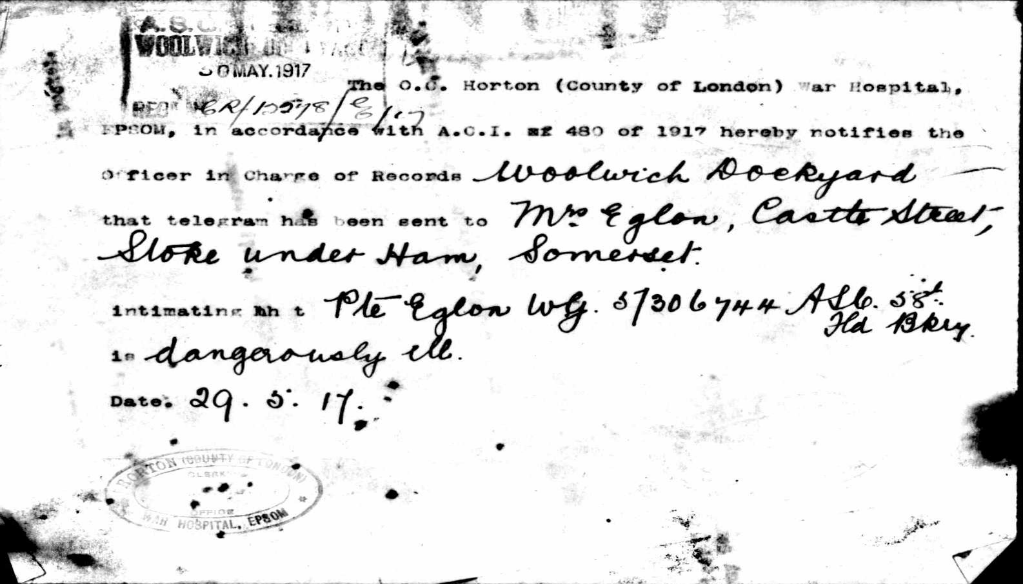 A.S.C.
WOOLWICH DOCKYARD
30 MAY. 1917
The O.C. Horton (County of London) War Hospital,
EPSOM, in accordance with A.C.I. of 480 of 1917 hereby notifies the
Officer in Charge of Records Woolwich Dockyard
that telegram has been sent to Mrs Eglon, Castle Street,
Stoke under Ham, Somerset.
intimating that Pte Eglon W.G. S/306744 ASC. 58th
Fld Bkry.
is dangerously ill.
Date. 29. 5. 17.
HORTON (COUNTY OF LONDON)
OFFICE
WAR HOSPITAL, EPSOM